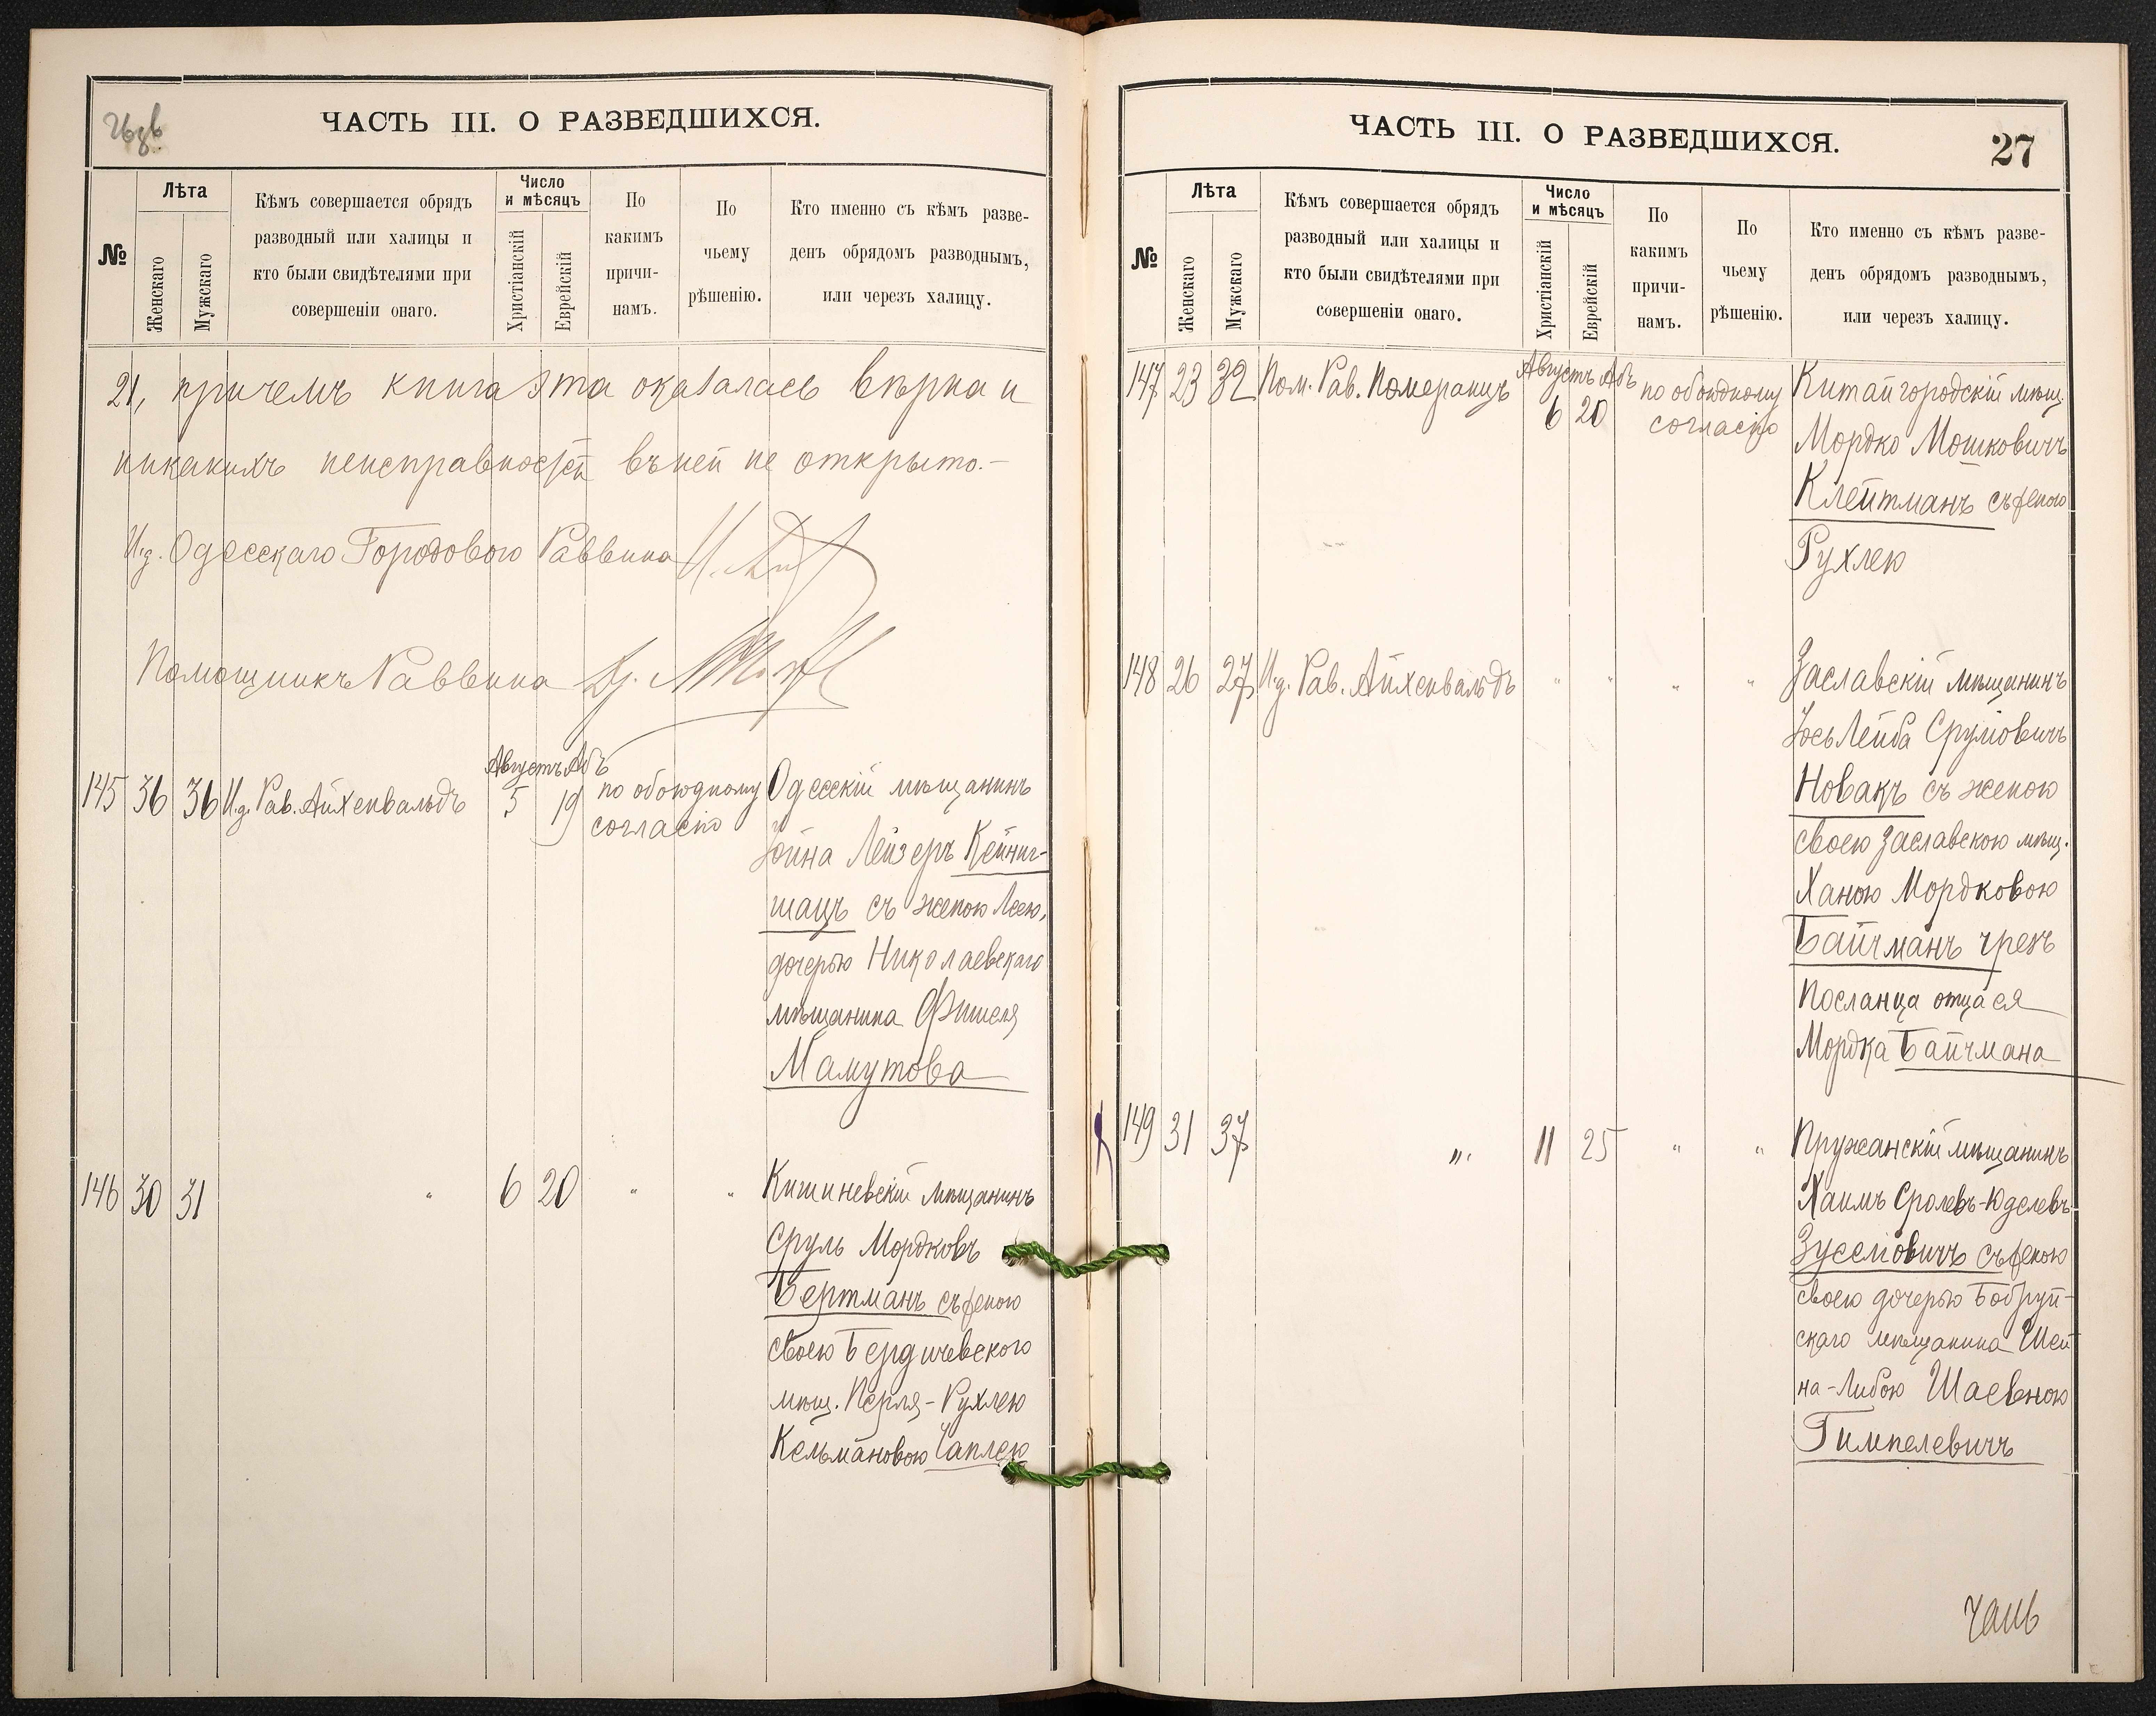 ЧАСТЬ III. О РАЗВЕДШИХСЯ.
№
Лѣта
Женскаго
Мужскаго
Кѣмъ совершается обрядъ
разводный или халицы и
кто были свидѣтелями при
совершеніи онаго.
Число
и мѣсяцъ
Христіанскій
Еврейскій
По
какимъ
причи-
намъ.
По
чьему
рѣшенію.
Кто именно съ кѣмъ разве-
денъ обрядомъ разводнымъ,
или черезъ халицу.
21, причемъ книга эта оказалась вѣрна и
никакихъ неисправностей въ ней не открыто.-
И.д. Одесскаго Городового Раввина
Помощникъ Раввина
Августъ Абъ
145 36 36 И.д. Рав. Айхенвальдъ 5 19 по обоюдному
согласію
Одесскій мѣщанинъ
Іойна Лейзеръ Кейниг-
шацъ съ женою Леею,
дочерью Николаевскаго
мѣщанина Фишеля
Мамутова
146 30 31 " 6 20 " "
Кишиневскій мѣщанинъ
Сруль Мордковъ
Бертманъ съ женою
своею Бердичевскою
мѣщ. Перля-Рухлею
Кельмановою Чаплею
ЧАСТЬ III. О РАЗВЕДШИХСЯ.
27
№
Лѣта
Женскаго
Мужскаго
Кѣмъ совершается обрядъ
разводный или халицы и
кто были свидѣтелями при
совершеніи онаго.
Число
и мѣсяцъ
Христіанскій
Еврейскій
По
какимъ
причи-
намъ.
По
чьему
рѣшенію.
Кто именно съ кѣмъ разве-
денъ обрядомъ разводнымъ,
или черезъ халицу.
Августъ Абъ
147 23 32 Пом. Рав. Померанцъ 6 20 по обоюдному
согласію
Китайгородскій мѣщ.
Мордко Мошковичъ
Клейтманъ съ женою
Рухлею
148 26 27 И.д. Рав. Айхенвальдъ " " " "
Заславскій мѣщанинъ
Іось Лейба Сруліовичъ
Новакъ съ женою
своею Заславскою мѣщ.
Ханою Мордковою
Байчманъ чрезъ
посланца отца ея
Мордка Байчмана
149 31 37 " 11 25 " "
Пружанскій мѣщанинъ
Хаимъ Сролевъ-Юделевъ
Зуселіовичъ съ женою
своею дочерью Бобруй-
скаго мѣщанина Шей
на-Либою Шаевною
Гимпелевичъ